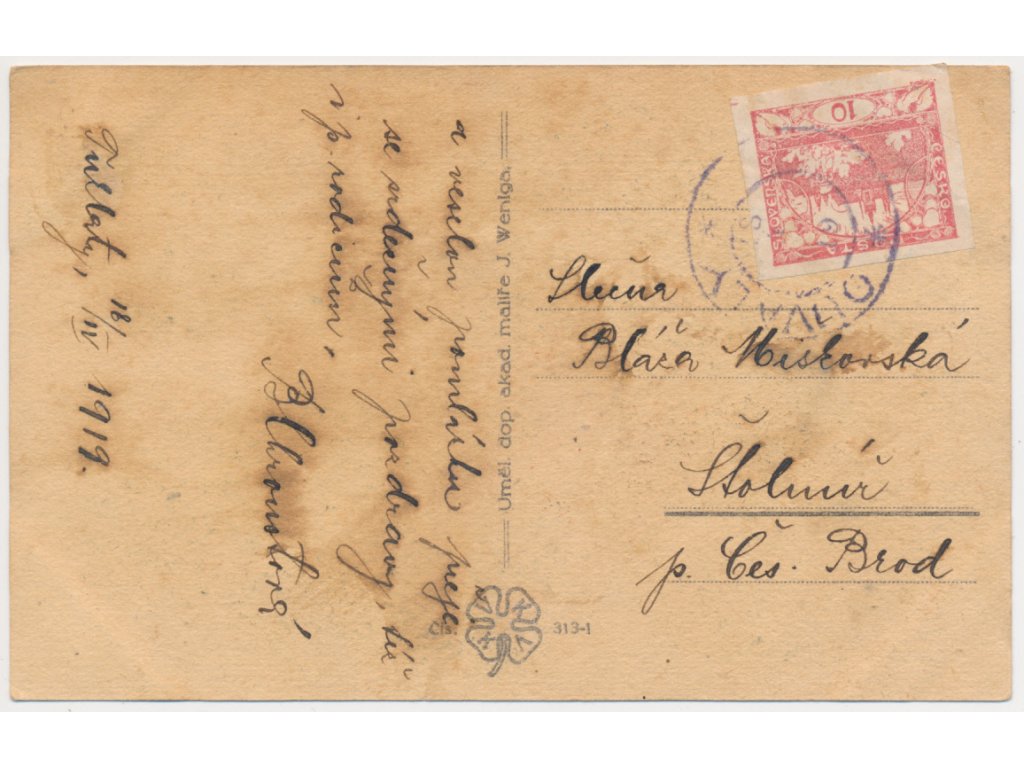 a veselou pomlázku přeje
se srdečnými pozdravy, též
i p. rodičům,
Tuklaty, 18/IV 1919.
Uměl. dop. akad. malíře J. Weniga.
Čís. 313-1
10
ČESKO
SLOVENSKÁ
ÚVALY
Slečna
Blaža
Štolmíř
p. Čes. Brod